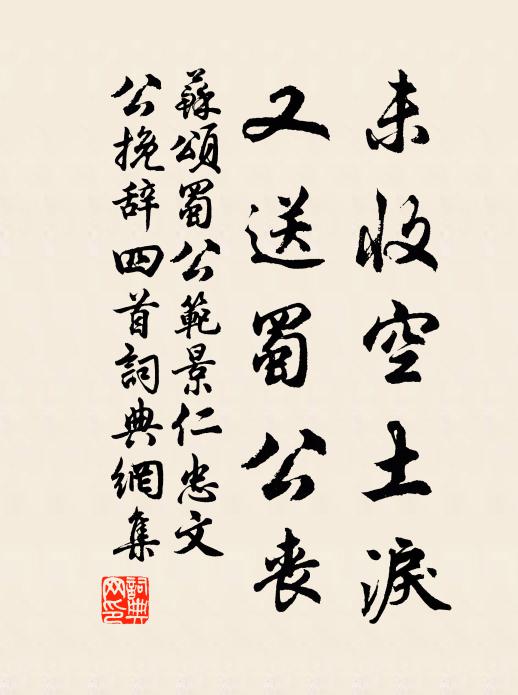 未收空土淚
又送蜀公喪
蘇頌蜀公範景仁忠文
公挽辞四首詞典網集
詞典网印